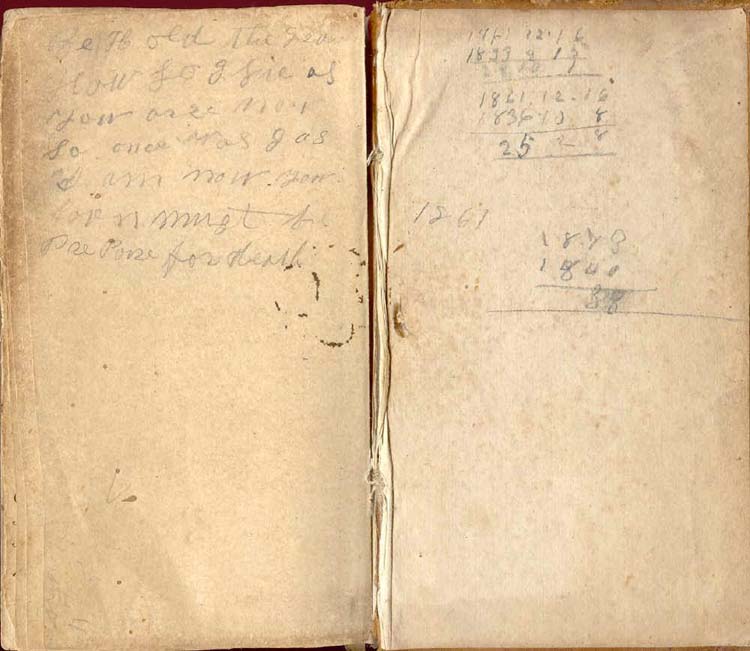 Be H old the Gra
low So I Lie as
You are now
So once was I as
I am now you
for H must be
Pre Pare for death
1861.12.16
1833 9 17
1861.12.16
1836 10. 8
25 2 8
1861
1878
1840
38